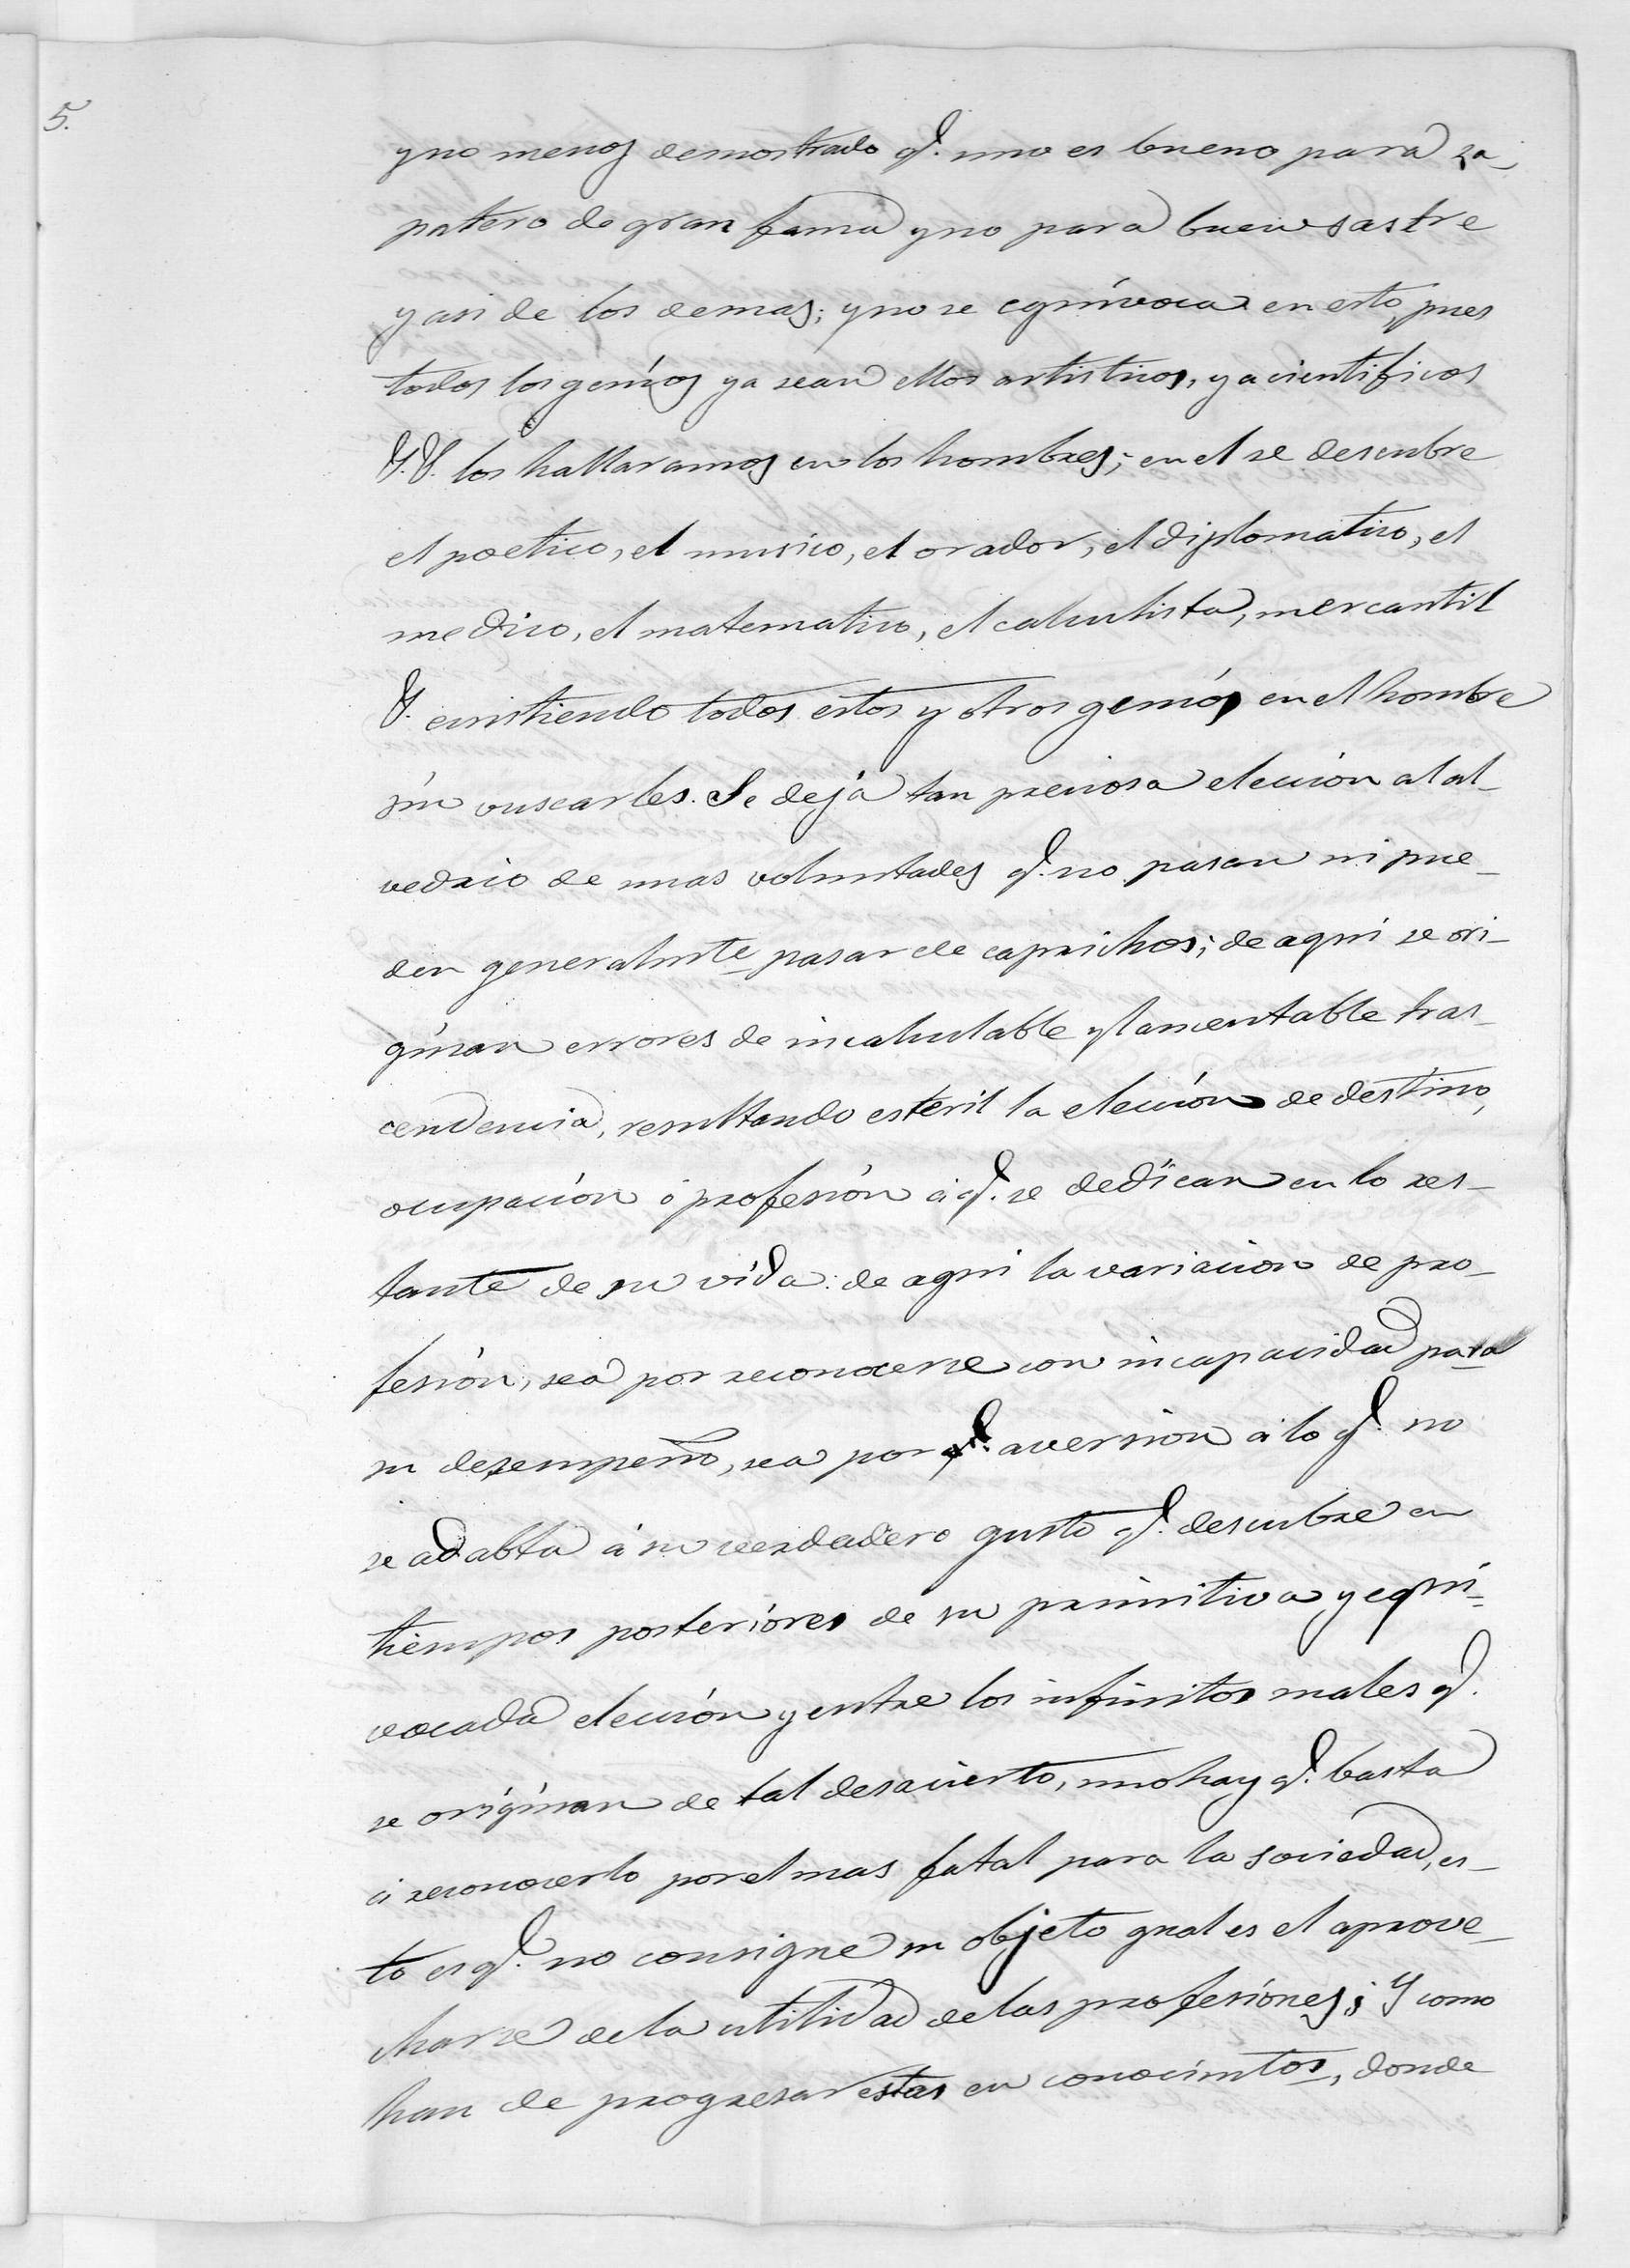 5.
y no ménos demostrado q.e uno es bueno para za-
patero de gran fama y no para buen sastre
y asi de los demas; y no se eqnívoca en esto, pues
todos los geníos ya sean ellos artisticos, ya cientificos
&. &. los hallaramos en los hombres; en el se descubre
el poetico, el musico, el orador, el diplomatico, el
medico, el matematico, el calculista, mercantil
&. ecsistiendo todos estos y otros geniós en el hombre
sín vuscarles. Se dejá tan preciosa elección al al-
vedrio de unas voluntades q.e no pasan ni pue-
den generalmte pasar de caprichos; de aqui se ori-
gínan errores de incalculable y lamentable tras-
cendencia, resultando esteril la elección de destíno,
ocupación ó profesión á q.e se dedícan en lo res-
tante de su vida: de aqui la variacion de pro-
fesión, sea por reconocerse con incapacidad para
su desempeño, sea por q.e aversion á lo q.e no
se adabta á su verdadero gusto q.e descubre en
tiempos posterióres de su primitiva y equi-
vocada elección y entre los infinitos males q.e
se orígínan de tal desacierto, uno hay q.e basta
á reconocerlo por el mas fatal para la sociedad, es-
to es q.e no consigue su objeto qual es el aprove-
charse de la utilidad de las profesiónes; Y como
han de progresar estas en conocimtos, donde